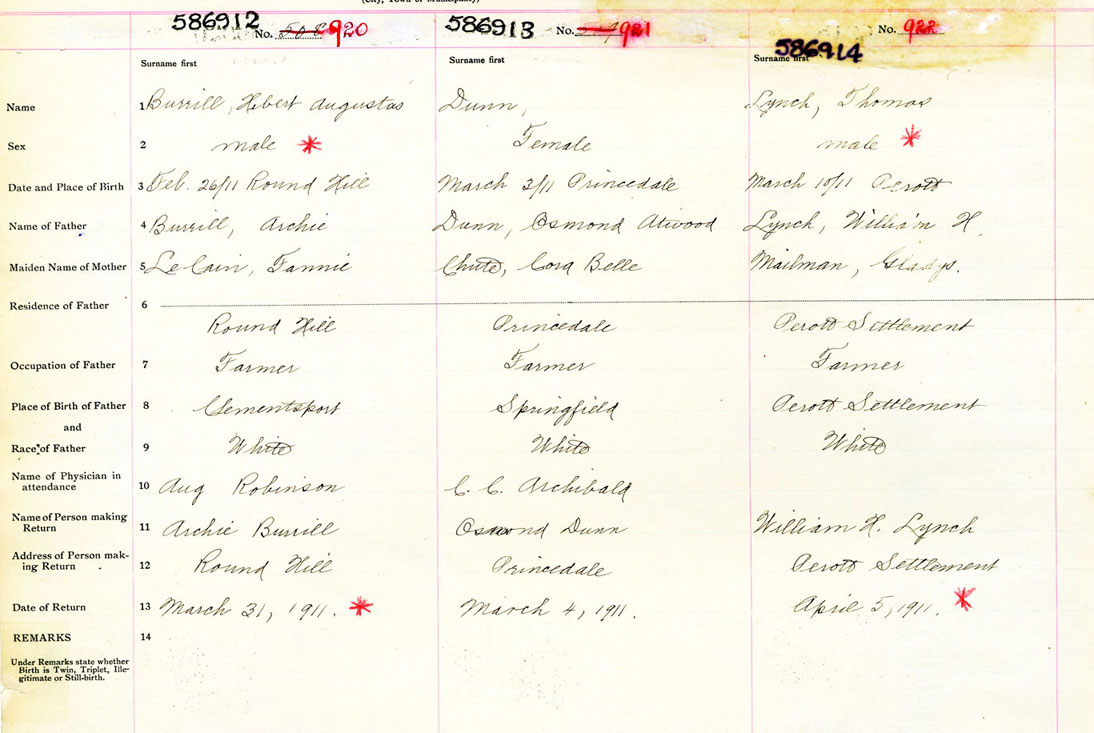 (City, Town or Municipality)
586912 No. 508 920 586913 No. 921 586914 No. 922
Surname first Surname first Surname first
Name 1 Burrill, Hibert Augustas Dunn, Lynch, Thomas
Sex 2 male * Female male *
Date and Place of Birth 3 Feb. 26/11 Round Hill March 3/11 Princedale March 10/11 Perott
Name of Father 4 Burrill, Archie Dunn, Osmond Atwood Lynch, William H.
Maiden Name of Mother 5 LeCain, Fannie Chute, Cora Belle Mailman, Gladys.
Residence of Father 6
Round Hill Princedale Perott Settlement
Occupation of Father 7 Farmer Farmer Farmer
Place of Birth of Father 8 Clementsport Springfield Perott Settlement
and
Race of Father 9 White White White
Name of Physician in
attendance 10 Aug Robinson C. C. Archibald
Name of Person making
Return 11 Archie Burrill Osmond Dunn William H. Lynch
Address of Person mak-
ing Return 12 Round Hill Princedale Perott Settlement
Date of Return 13 March 31, 1911. * March 4, 1911. April 5, 1911. *
REMARKS 14
Under Remarks state whether
Birth is Twin, Triplet, Ille-
gitimate or Still-birth.